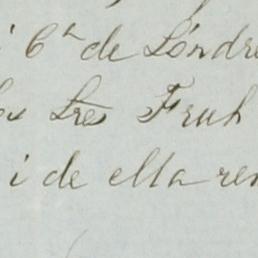 i Cª de Lóndre
los Sres Fruh
i de ella ren